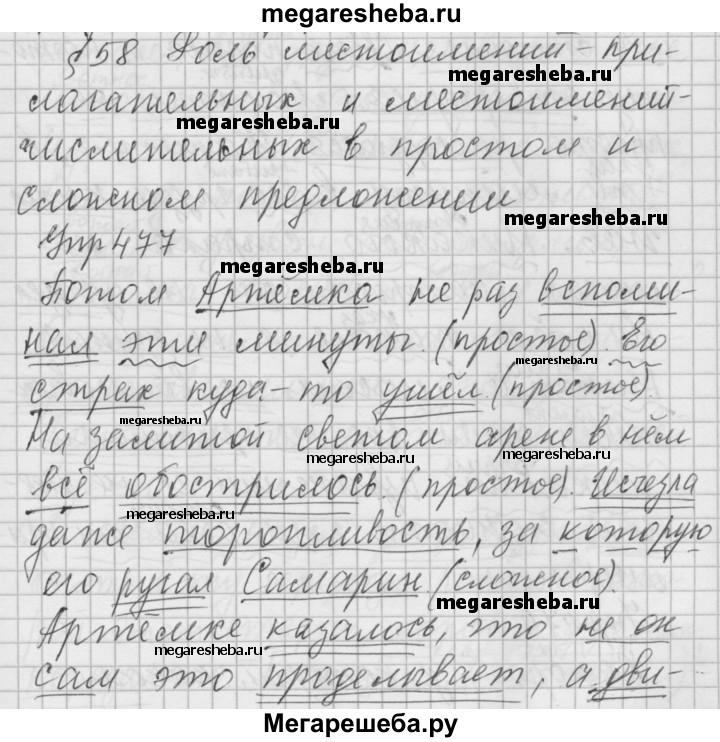 megaresheba.ru
§ 58 Роль местоимений-при-
megaresheba.ru
лагательных и местоимений-
megaresheba.ru
числительных в простом и
сложном предложении
megaresheba.ru
Упр 477
megaresheba.ru
Потом Артёмка не раз вспоми-
нал эти минуты. (простое). Его
megaresheba.ru
страх куда-то ушёл. (простое).
megaresheba.ru
На залитой светом арене в нём
megaresheba.ru megaresheba.ru
всё обострилось. (простое). Исчезла
megaresheba.ru
даже торопливость, за которую
его ругал Самарин. (сложное).
megaresheba.ru
Артёмке казалось, что не он
megaresheba.ru
сам это проделывает, а дви-
Мегарешеба.ру